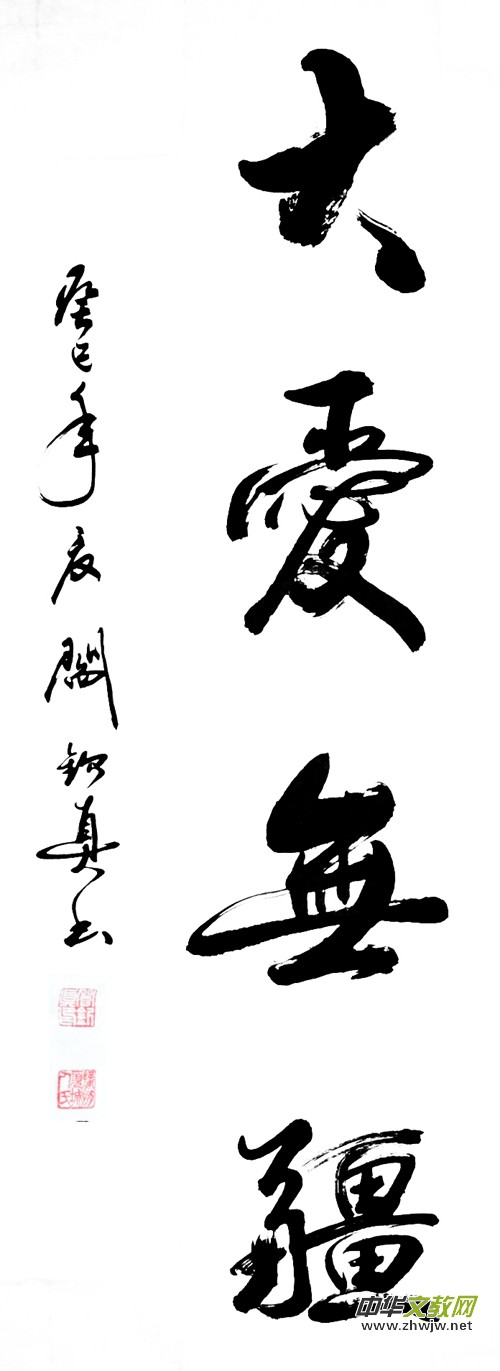 大愛無疆
癸巳年夏關真书
中华文教网
www.zhwjw.net